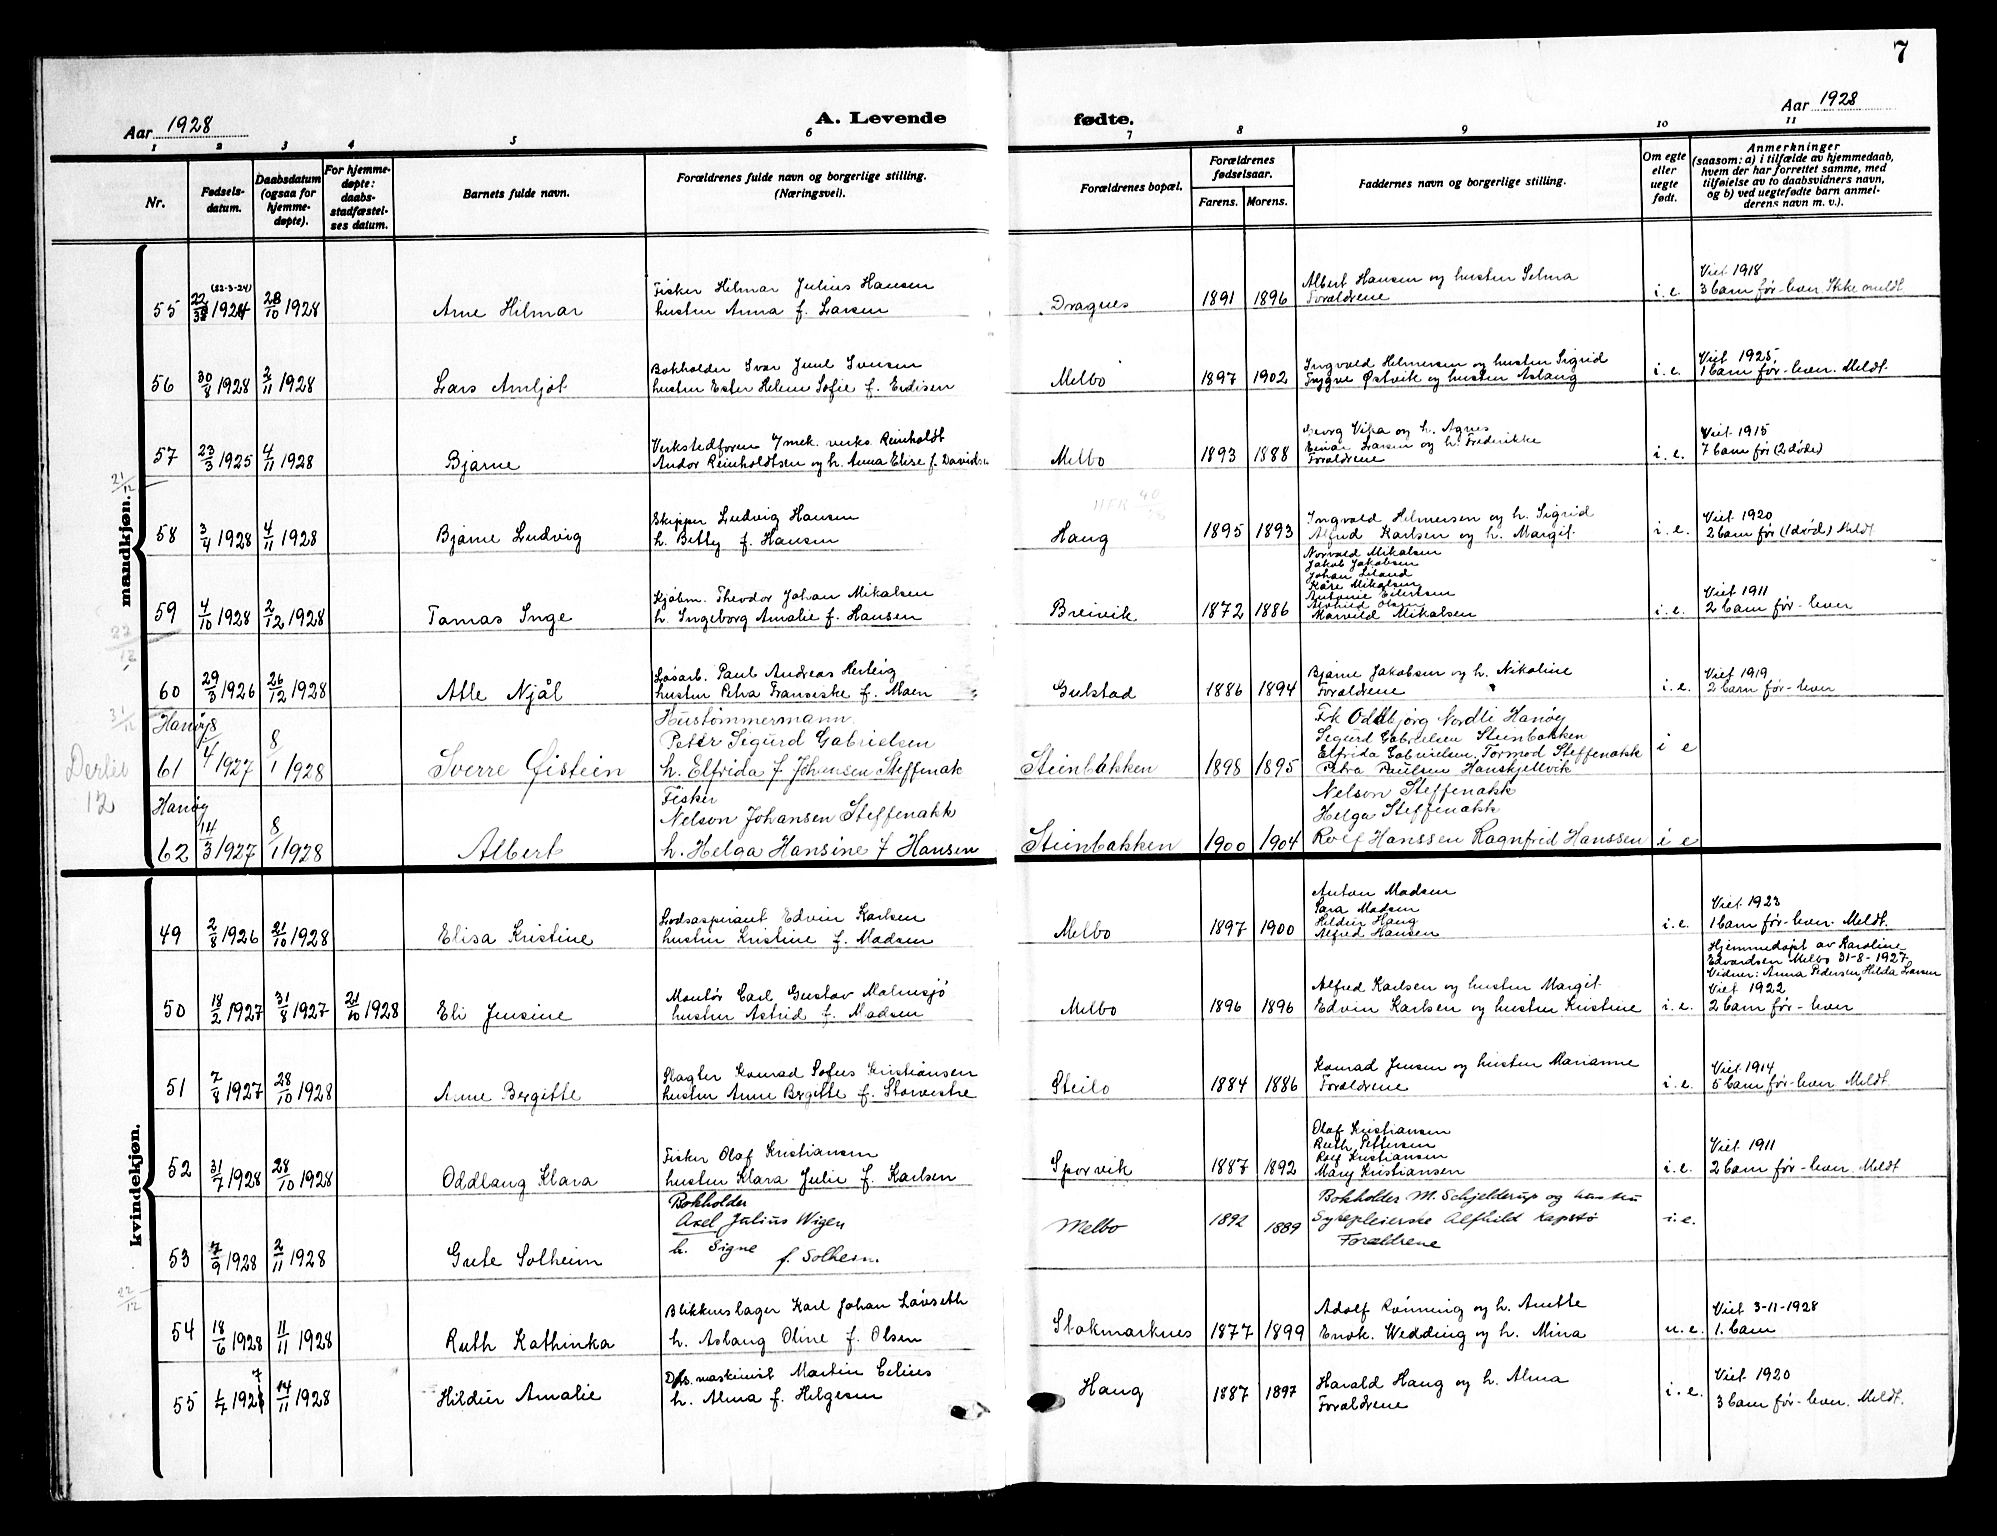 7
Aar 1928
A. Levende
fødte.
Aar 1928
1 2 3 4 5 6 7 8 9 10 11
Nr.
Fødsels-
datum.
Daabsdatum
(ogsaa for
hjemme-
døpte).
For hjemme-
døpte:
daabs-
stadfæstel-
ses datum.
Barnets fulde navn.
Forældrenes fulde navn og borgerlige stilling.
(Næringsvei).
Forældrenes bopæl.
Forældrenes
fødselsaar.
Farens. Morens.
Faddernes navn og borgerlige stilling.
Om egte
eller
uegte
født.
Anmerkninger
(saasom: a) i tilfælde av hjemmedaab,
hvem der har forrettet samme, med
tilføielse av to daabsvidners navn,
og b) ved uegtefødte barn anmel-
derens navn m. v.).
mandkjøn.
(22-3-24)
55 22/3 1924 28/10 1928 Arne Hilmar
Fisker Hilmar Julius Hansen
hustru Anna f. Larsen
Dragnes 1891 1896
Albert Hansen og hustru Selma
Foræ­ldrene
i. e.
Viet 1918
3 barn før-lever. Ikke meldt
56 30/8 1928 2/11 1928 Lars Arnljot
Bokholder Ivar Juul Ivensen
hustru Ester Helene Sofie f. Evdisen
Melbo 1897 1902
Ingvald Helmersen og hustru Sigrid
Trygve Østvik og hustru Aslaug
i. e.
Viet 1925
1 barn før-lever. Meldt.
57 23/3 1925 4/11 1928 Bjarne
Verkstedform. v/ mek. verks. Reinholdt
Andor Reinholdtsen og h. Anna Elise f. Davids
Melbo 1893 1888
Georg Vipa og h. Agnes
Einar Larsen og h. Frederikke
Forældrene
i. e.
Viet 1915
7 barn før (2 døde)
21/12
58 3/4 1928 4/11 1928 Bjarne Ludvig
Skipper Ludvig Hansen
h. Betty f. Hansen
Haug 1895 1893
Ingvald Helmersen og h. Sigrid
Alfred Karlsen og h. Margit.
i. e.
Viet 1920
2 barn før (1 død) Meldt
59 4/10 1928 2/12 1928 Tomas Inge
Kjøbm. Theodor Johan Mikalsen
h. Ingeborg Amalie f. Hansen
Breivik 1872 1886
Norvald Mikalsen
Jakob Jakobsen
Johan Liland
Kåre Mikalsen
Antonie Eilertsen
Marvild Mikalsen
i. e.
Viet 1911
2 barn før-lever
22/12
60 29/3 1926 26/12 1928 Atle Njål
Løsarb. Paul Andreas Herleig
hustru Petra Franseske f. Moen
Gulstad 1886 1894
Bjarne Jakobsen og h. Nikoline
Forældrene
i. e.
Viet 1919
2 barn før-lever
31/12
Hanøy
61 18/4 1927 8/1 1928 Sverre Øistein
Hustømmermann
Peter Sigurd Gabrielsen
h. Elfrida f Johansen Steffenak
Steinbakken 1898 1895
Frk Oddbjørg Nordli Hanøy
Sigurd Gabrielsen Steinbakken
Elfrida Gabrielsen, Tormod Steffenakk
Petra Paulsen Hanskjellvik
i e
12
Hanøy
62 14/3 1927 8/1 1928 Albert
Fisker
Nelson Johansen Steffenakk
h. Helga Hansine f Hansen
Steinbakken 1900 1904
Nelson Steffenakk
Helga Steffenakk
Rolf Hanssen Ragnfrid Hanssen
i e
kvindekjøn.
49 2/8 1926 21/10 1928 Elisa Kristine
Lodsaspirant Edvin Karlsen
hustru Kristine f. Madsen
Melbo 1897 1900
Anton Madsen
Sara Madsen
Hildur Haug
Alfred Hansen
i. e.
Viet 1923
1 barn før-lever. Meldt.
50 18/2 1927 31/8 1927 21/10 1928 Eli Jensine
Montør Carl Gustav Malmsjö
hustru Astrid f. Madsen
Melbo 1896 1896
Alfred Karlsen og hustru Margit
Edvin Karlsen og hustru Kristine
i. e.
Hjemmedøpt av Karoline
Edvardsen Melbo 31-8-1927
Vidner: Anna Pedersen, Hilda Larsen
Viet 1922
2 barn før-lever
51 7/8 1927 28/10 1928 Anne Bergitte
Slagter Konrad Sofus Kristiansen
hustru Anne Bergitte f. Storvestre
Steilo 1884 1886
Konrad Jensen og hustru Marianne
Forældrene
i. e.
Viet 1914
5 barn før-lever. Meldt
52 31/7 1928 28/10 1928 Oddlaug Klara
Fisker Olaf Kristiansen
hustru Klara Julie f. Karlsen
Sporvik 1887 1892
Olaf Kristiansen
Ruth Pettersen
Rolf Kristiansen
Mary Kristiansen
i. e.
Viet 1911
2 barn før-lever. Meldt
53 7/9 1928 2/11 1928 Grete Solheim
Bokholder
Axel Julius Wigen
h. Signe f. Solheim.
Melbo 1892 1889
Bokholder M. Schjelderup og hustru
Sykepleierske Alfhild Kapstø
Forældrene
i. e.
22/12
54 18/6 1928 11/11 1928 Ruth Kathinka
Blikkenslager Karl Johan Løvseth
h. Aslaug Oline f. Olsen
Stokmarknes 1877 1899
Adolf Rønning og h. Anette
Enok. Wedding og h. Mina
u. e.
Viet 3-11-1928
1. barn
55 1/7 1927 14/11 1928 Hildur Amalie
Dpsk. maskinist Martin Celius
h. Alma f. Helgesen
Haug 1887 1897
Harald Haug og h. Alma
Forældrene
i. e.
Viet 1920
3 barn før-lever. Meldt.